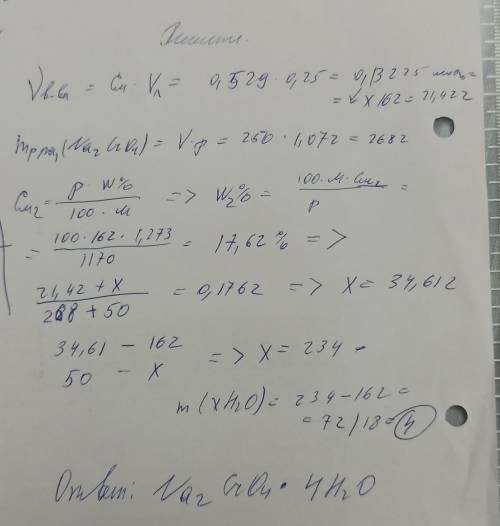 Решение.
νв-ва = См · Vл = 0,529 · 0,25 = 0,13225 моль =
= ✓ x 162 = 21,422
mр-ра(Na2CrO4) = V·ρ = 250 · 1,072 = 268г
См2 = ρ · W% / 100 · М => W2% = 100 · М · См2 / ρ =
= 100 · 162 · 1,273 / 1170 = 17,62 % =>
21,42 + x / 268 + 50 = 0,1762 => x = 34,61г
34,61 – 162
50 – x => x = 234
m (xH2O) = 234 – 162 =
= 72 / 18 = 4
Ответ: Na2CrO4 · 4H2O